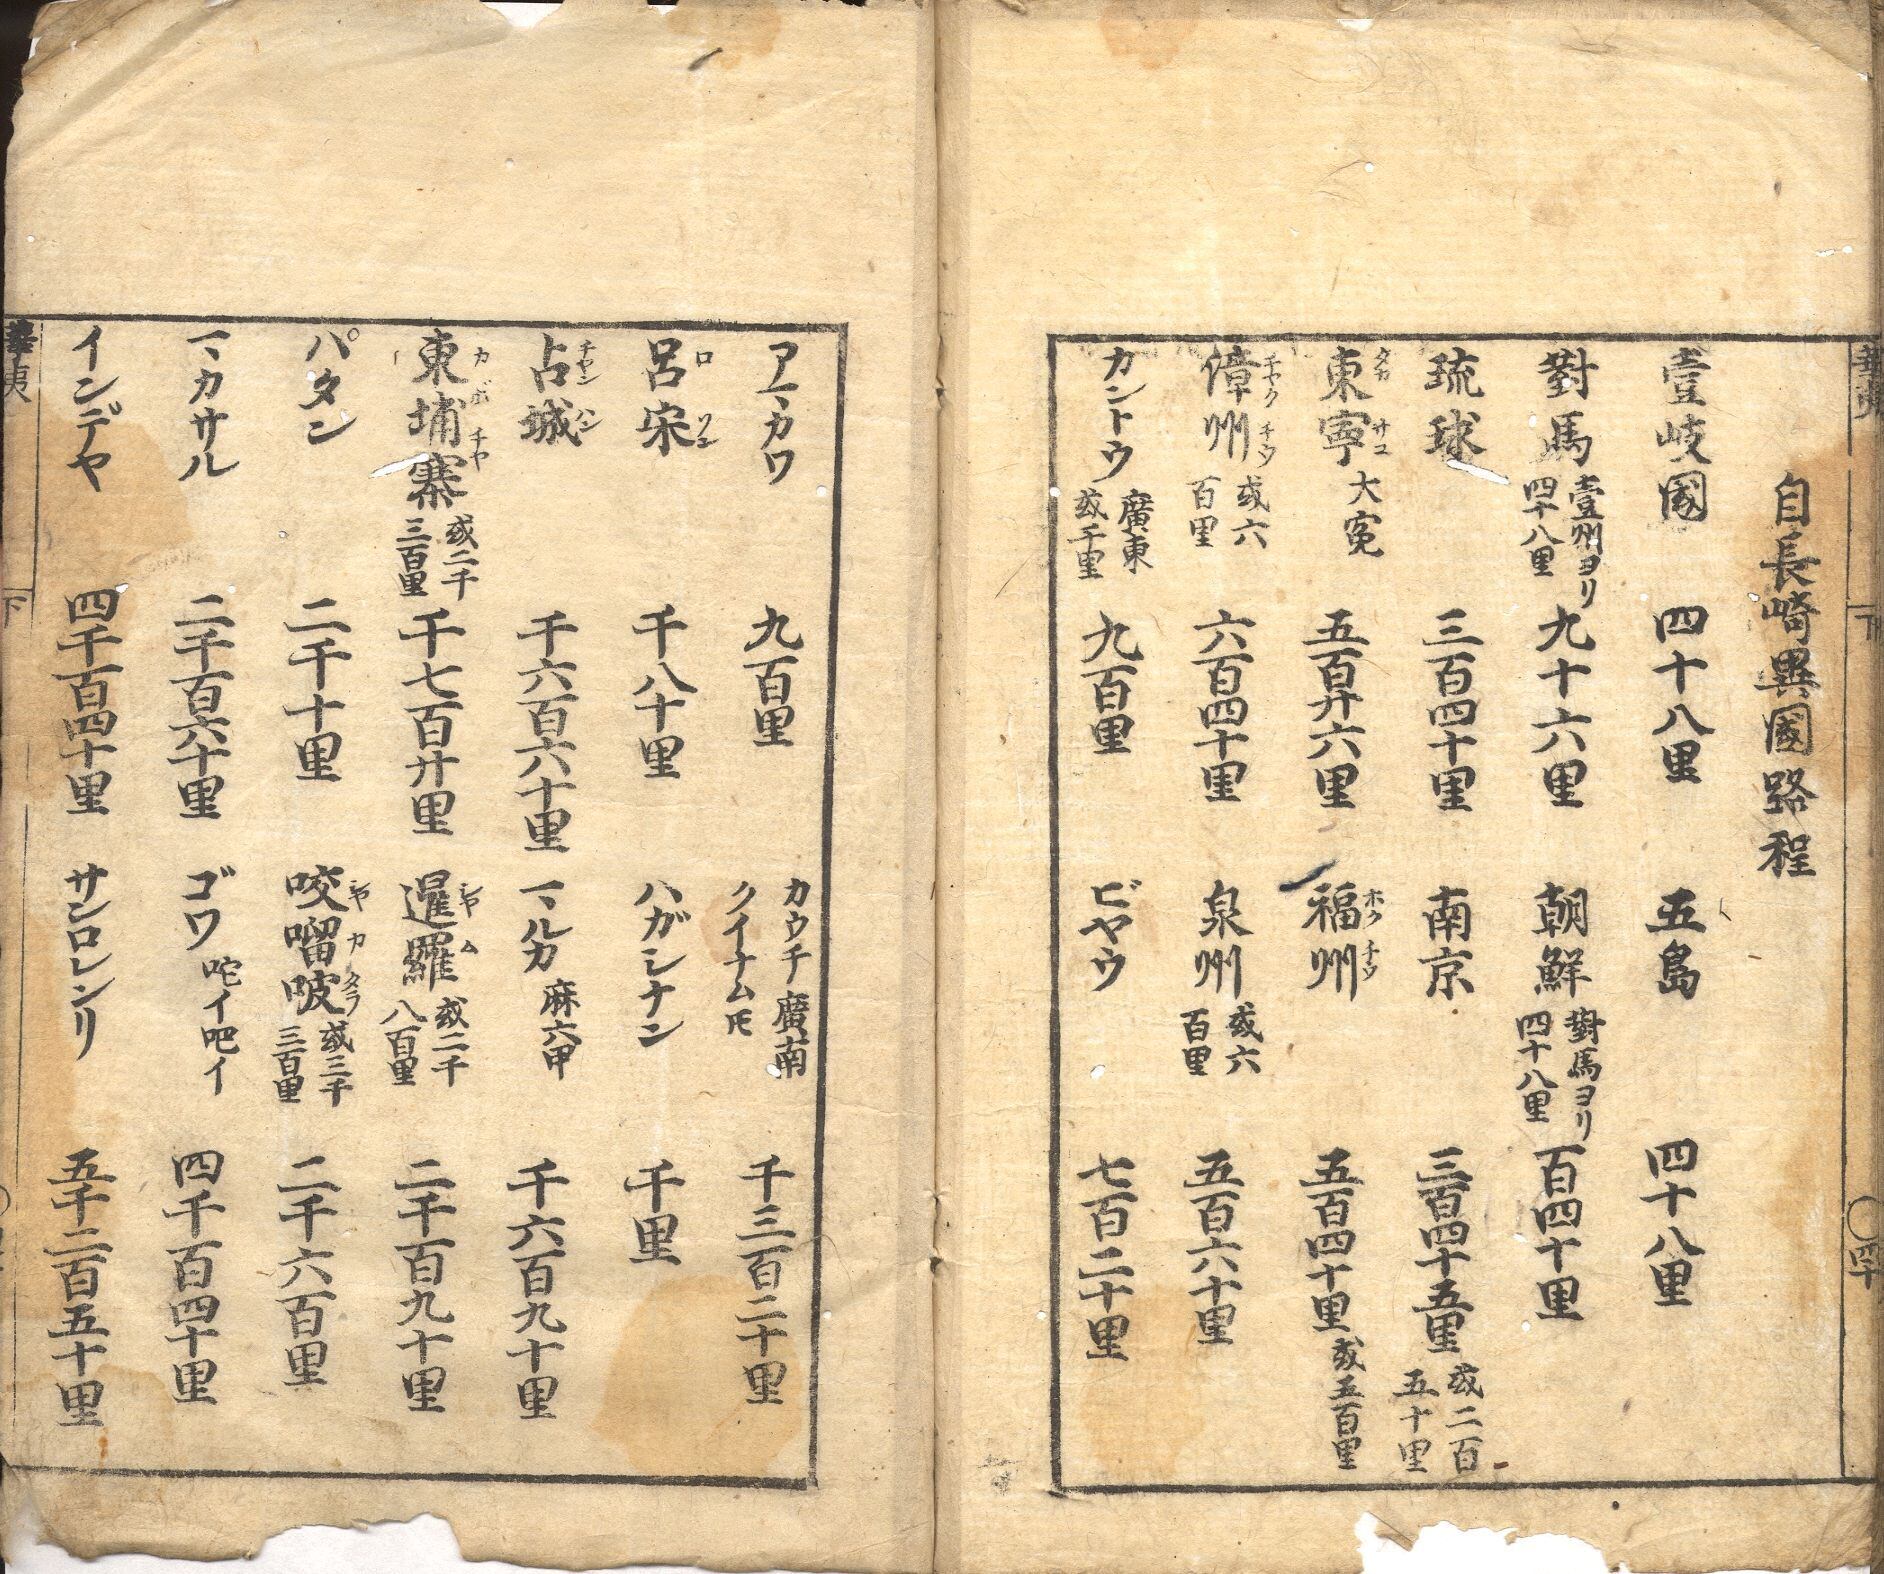 自長崎異國路程
壹岐國 四十八里 五島 四十八里
對馬 壹州ヨリ四十八里 九十六里 朝鮮 對馬ヨリ四十八里 百四十里
琉球 三百四十里 南京 三百四十五里 或二百五十里
東寧 タカサコ 大寃 五百廿六里 福州 ホクチウ 五百四十里 或五百里
漳州 チヤクチウ 或六百里 六百四十里 泉州 或六百里 五百六十里
カントウ 廣東 或千里 九百里 ビヤウ 七百二十里
アマカワ 九百里 カウチ 廣南 クイナムトモ 千三百二十里
呂宋 ロソン 千八十里 ハガシナン 千里
占城 チヤンハン 千六百六十里 マルカ 麻六甲 千六百九十里
東埔寨 カボチヤ 或二千三百里 千七百廿里 暹羅 シヤム 或二千八百里 二千百九十里
パタン 二千十里 咬𠺕吧 或三千三百里 二千六百里
マカサル 二千百六十里 ゴワ 四千百四十里
インデヤ 四千百四十里 サンロレンソ 五千二百五十里
華夷
下